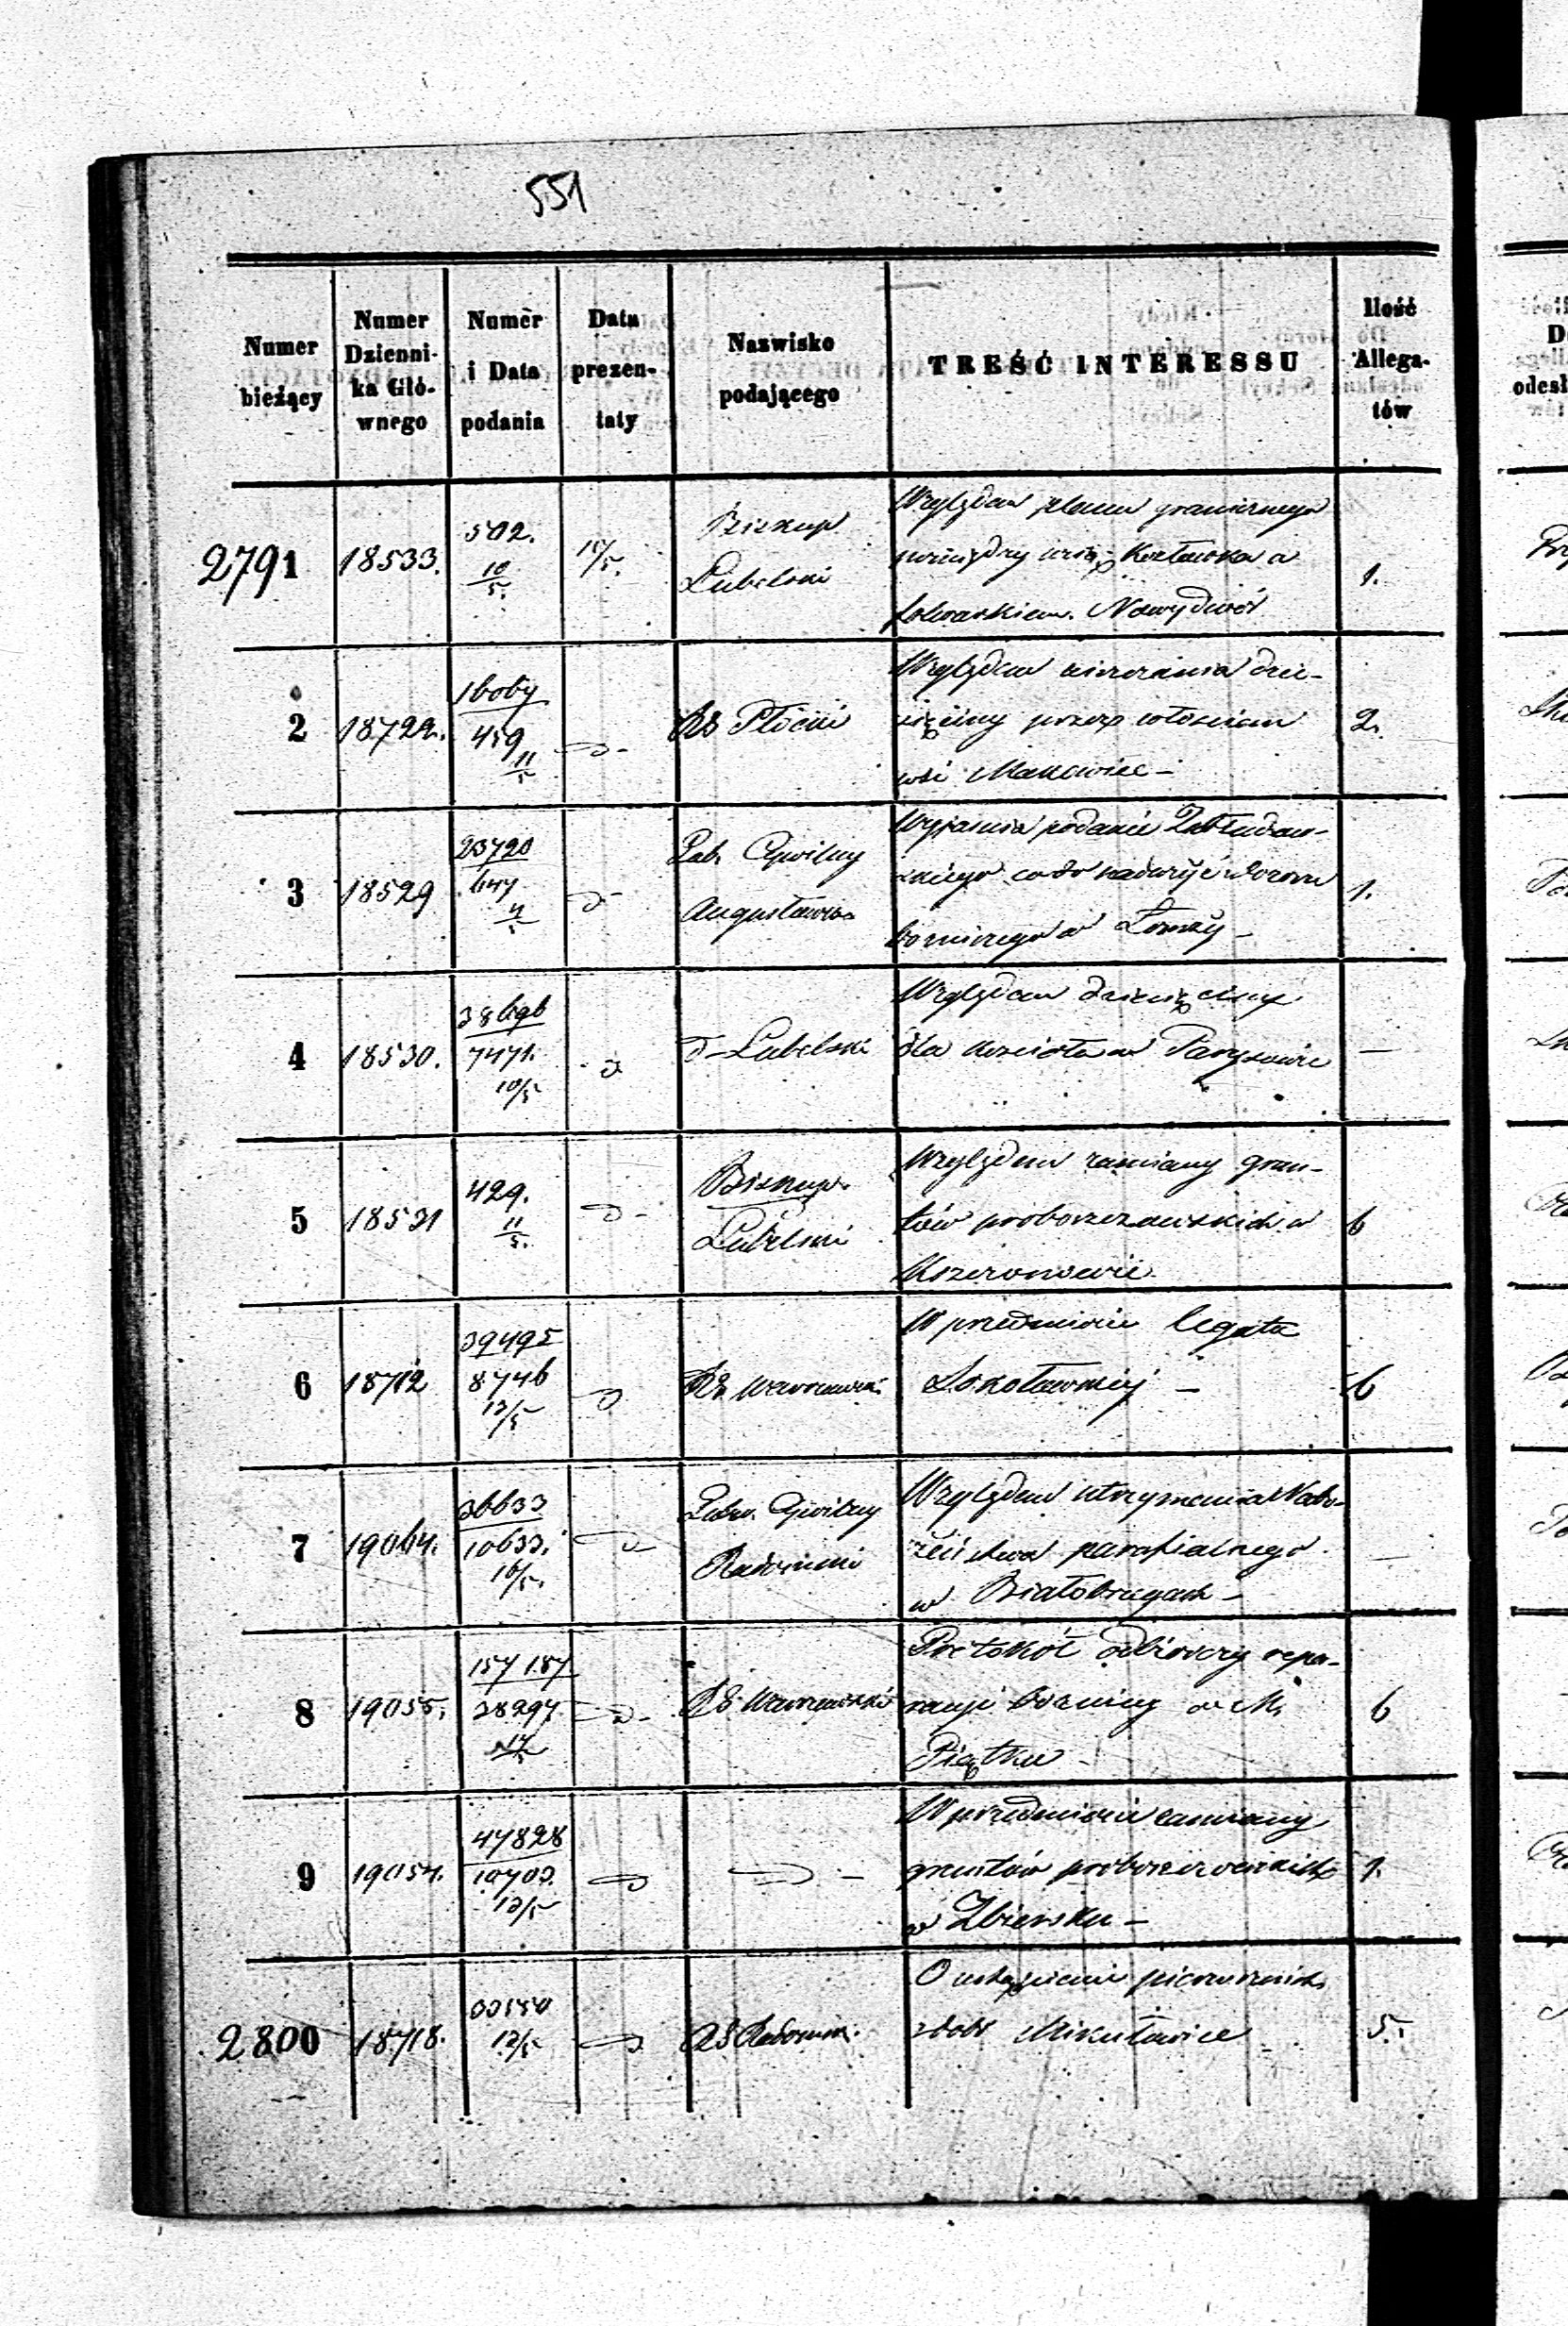 551
Numer bieżący
Numer Dzienni-ka Głó-wnego
Numer i Data podania
Data prezen-taty
Nazwisko podającego
TREŚĆ INTERESSU
Ilość Allega-tów
2791 18533. 502. 10/5. 14/5. Biskup Lubelski
Względem planu granicznego
pomiędzy wsią Kozłówka a
folwarkiem Nowydwór
1.
2 18722. 459 11/5 RG Płocki
Względem uiszczania dzie-
sięciny przez włościan
wsi Makowiec –
2.
3 18529 23720 647 Gub. Cywilny Augustowski
Wyjaśnia podanie
co do nadużyć dozoru
bożniczego w Łomży –
1.
4 18530. 38696 7471. 10/5 d – Lubelski
Względem dziesięciny
dla kościoła w Parysowie
—
5 18531 429. 11/5. Biskup Lubelski
Względem zamiany grun-
tów proboszczowskich w
6
6 18712 39495 8746 12/5 RG Warszawski
W przedmiocie legatu
Sokołowskiej –
6
7 19064. 36633 10633. 16/5. Gub. Cywilny Radomski
Względem utrzymania Nabo-
żeństwa parafialnego
w Białobrzegach –
8 19055. 157187 28297 RG Warszawski
Protokół odbiorczy repa-
racyi bożnicy w M.
Piątku –
6
9 19054. 47828 10703. 12/5
W przedmiocie zamiany
gruntów proboszczowskich
w Zbiersku –
1.
2800 18718. 12/5 RG Radomski
O ustąpienie pierwszeństwa
z dóbr Mikułowice
5.